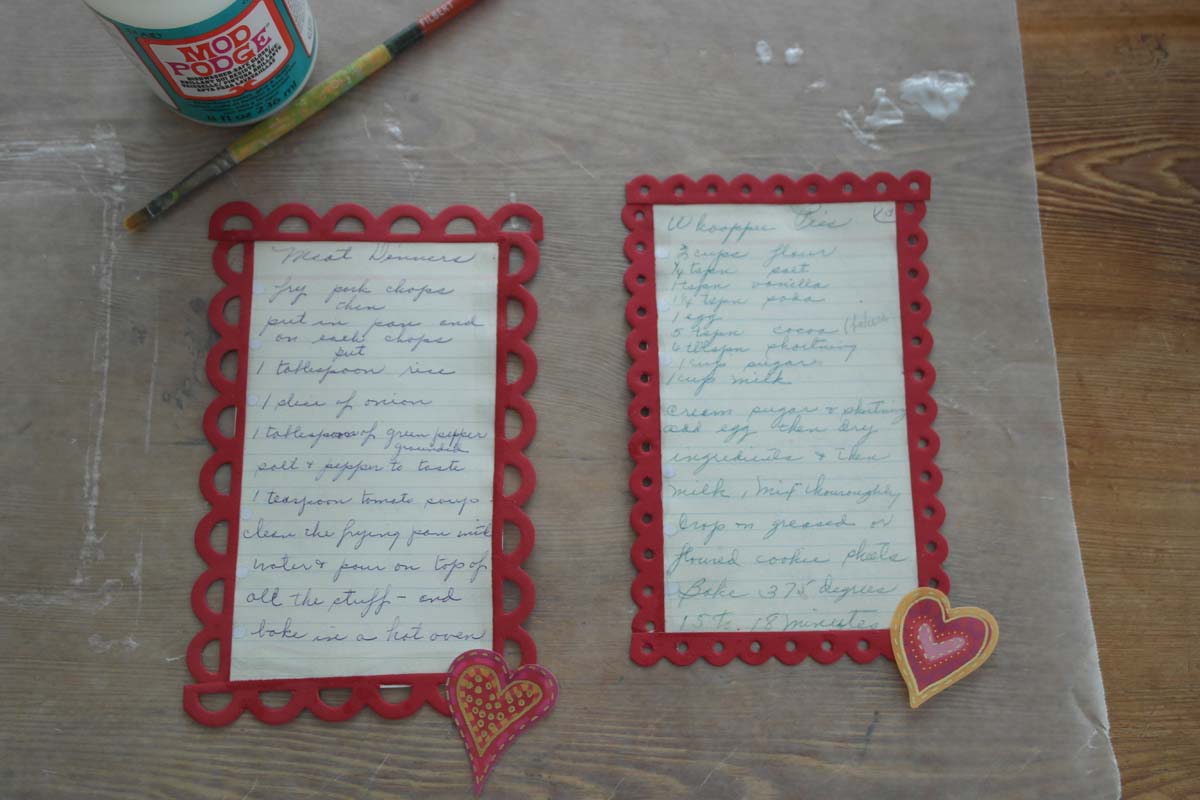 MOD
PODGE
DISHWASHER SAFE GLOSS/
8 fl oz 236 ml
FILBERT
Meat Dinners
fry pork chops
then
put in pan and
on each chops
put
1 tablespoon rice
1 slice of onion
1 tablespoon of green pepper
salt & pepper to taste
1 teaspoon tomato soup
clean the frying pan with
water & pour on top of
all the stuff - and
bake in a hot oven
Whooppee Pies
2 cups flour
1/4 tspn salt
1 tspn vanilla
1 1/4 tspn soda
1 egg
5 tspn cocoa
6 tblspn shortning
1 cup sugar
1 cup milk
Cream sugar & shortning
add egg then dry
ingredients & then
milk, mix thouroughly
Drop on greased or
floured cookie sheets
Bake 375 degrees
15 to 18 minutes